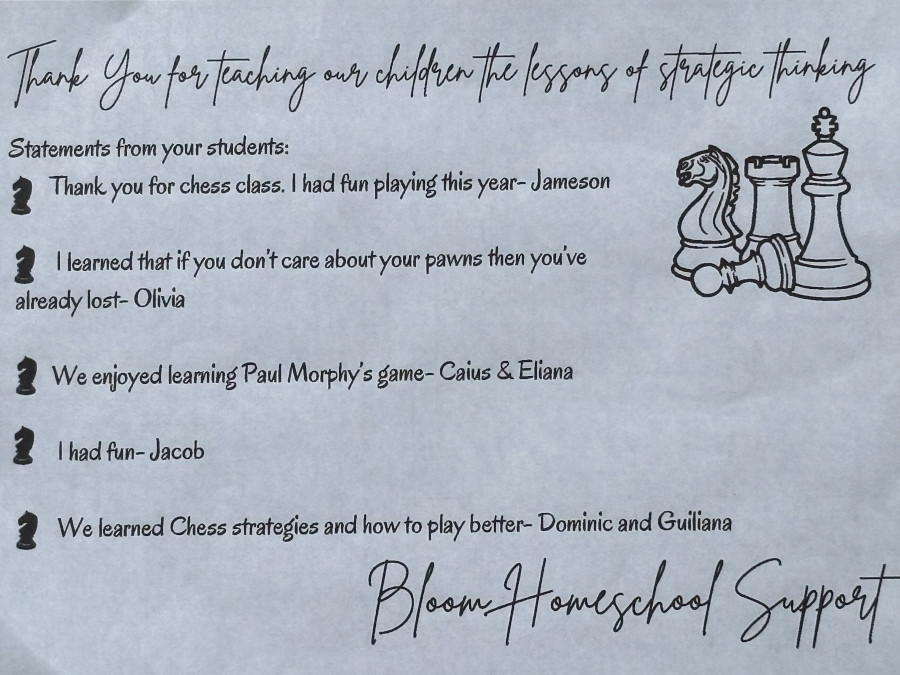 Thank You for teaching our children the lessons of strategic thinking
Statements from your students:
Thank you for chess class. I had fun playing this year- Jameson
I learned that if you don't care about your pawns then you've
already lost- Olivia
We enjoyed learning Paul Morphy's game- Caius & Eliana
I had fun- Jacob
We learned Chess strategies and how to play better- Dominic and Guiliana
Bloom Homeschool Support